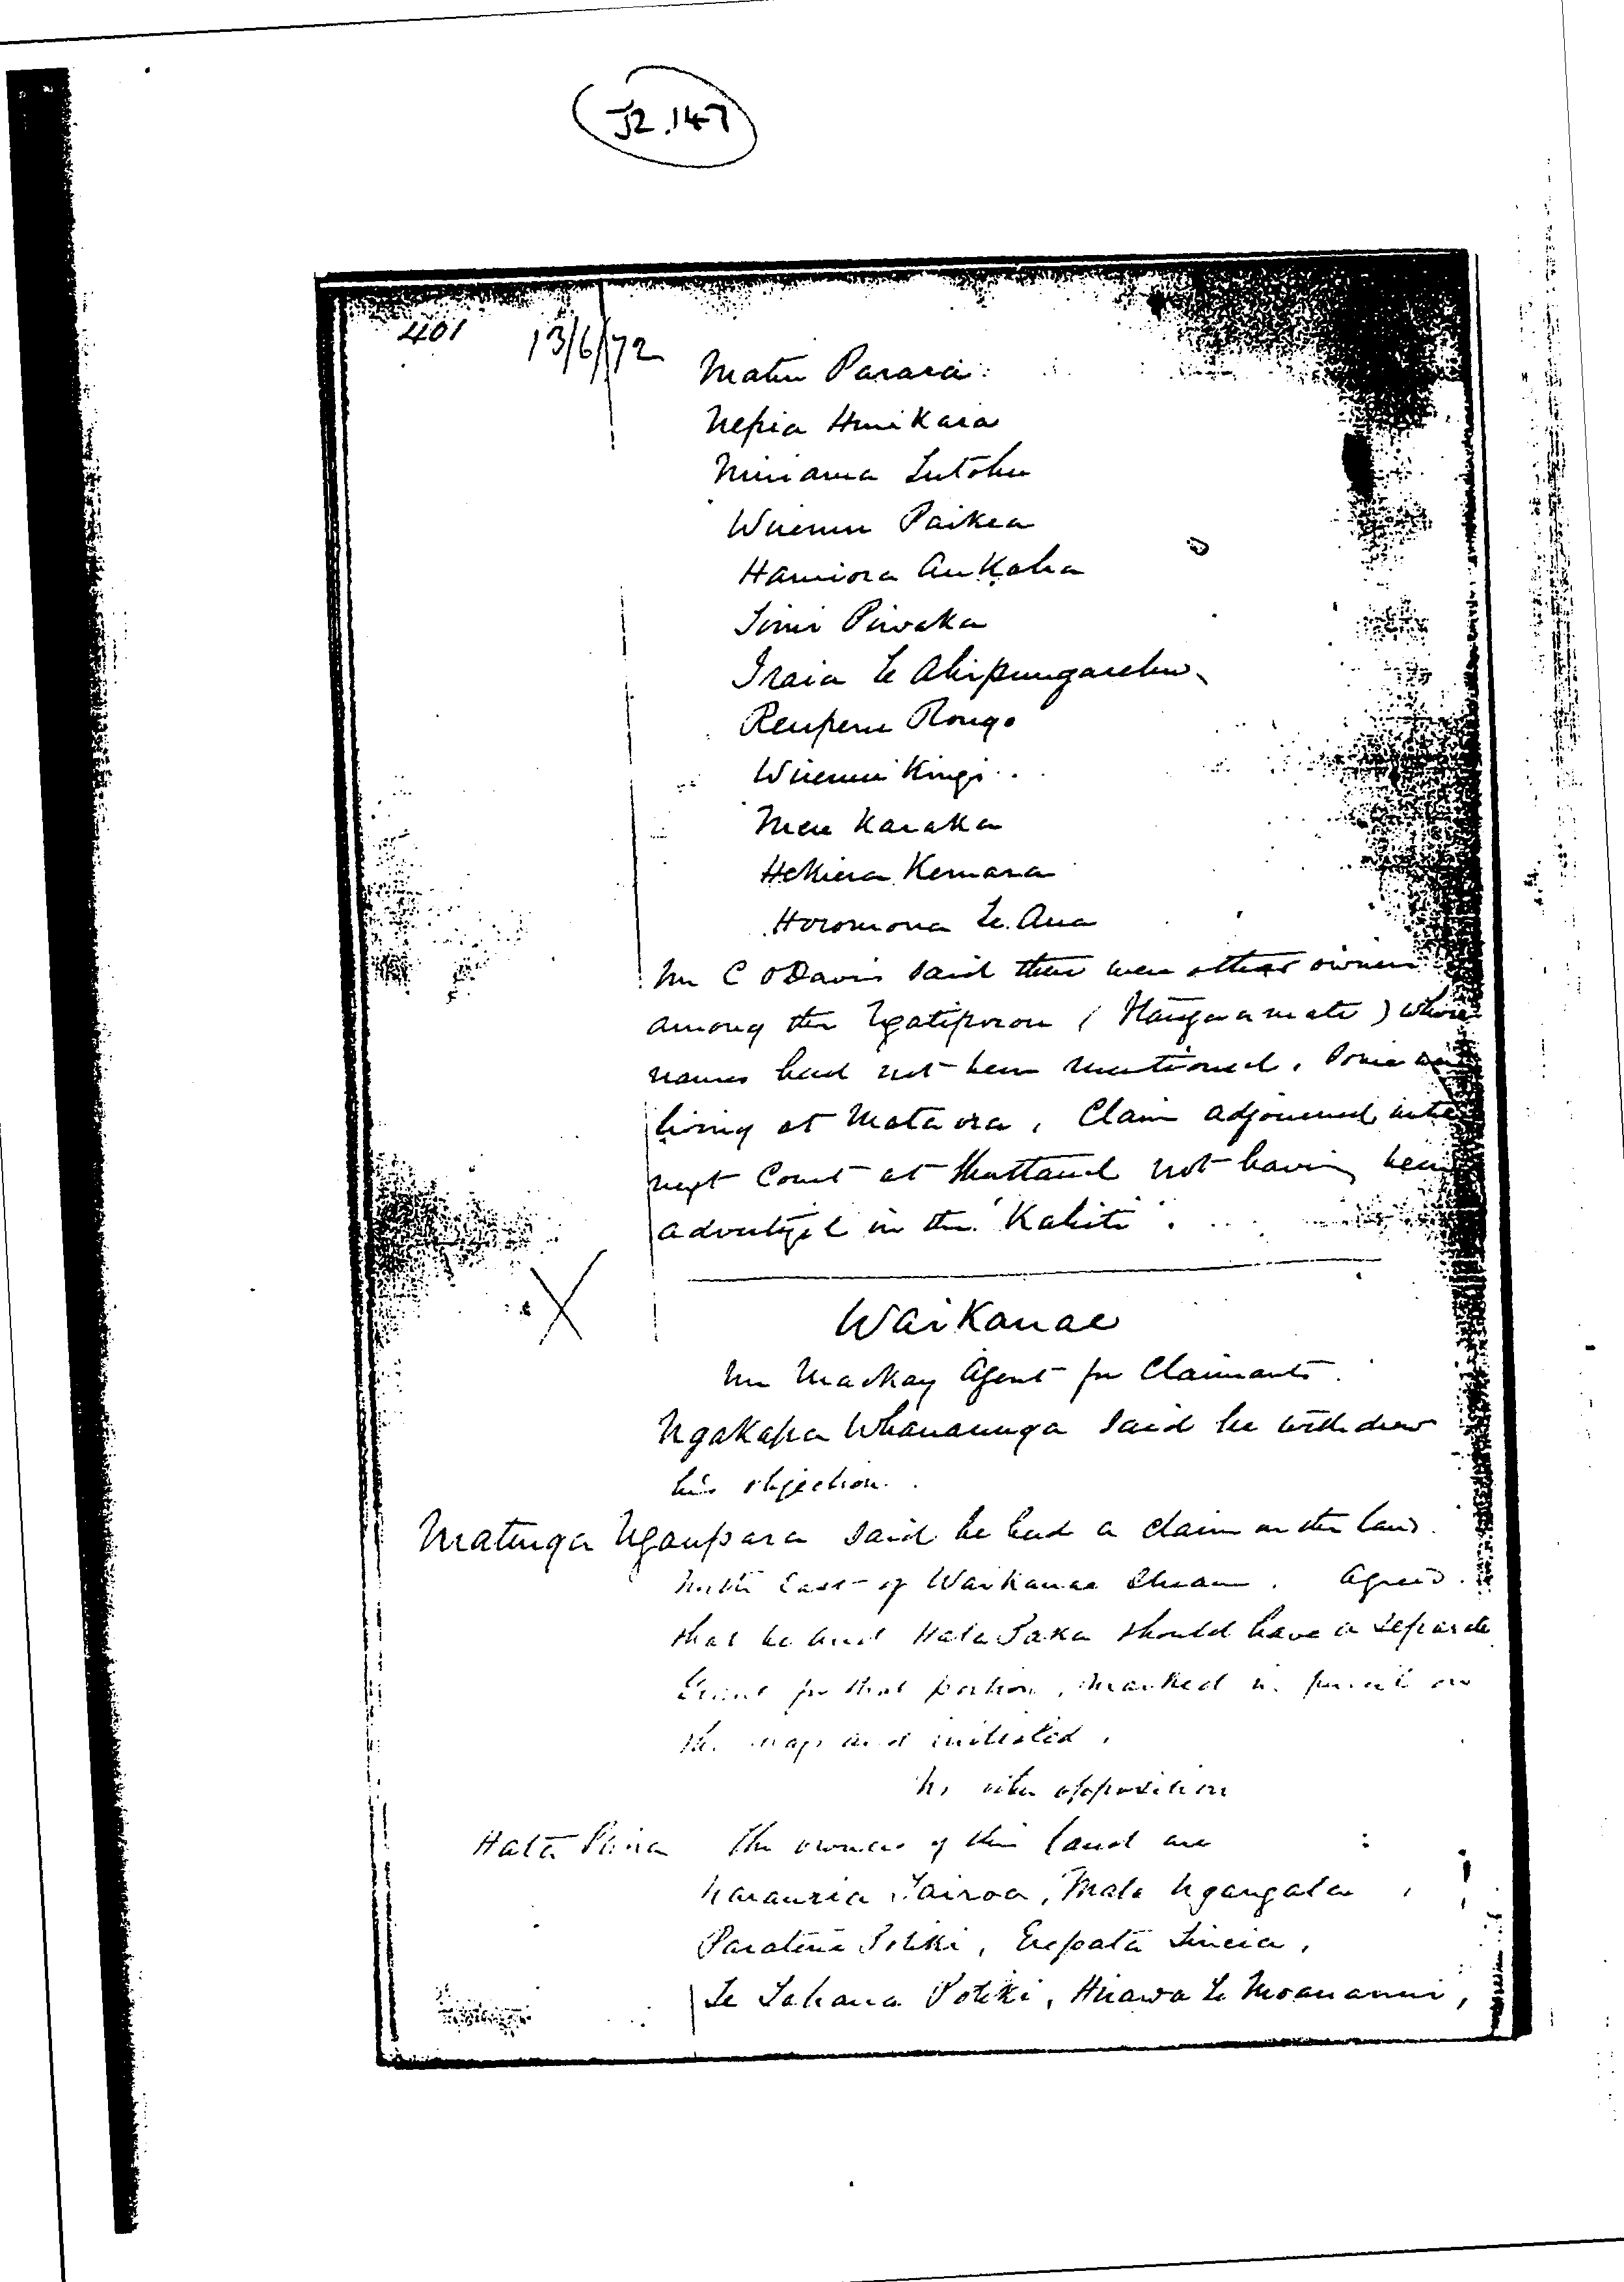 J2.147
401 13/6/72
Matiu Pararai
Nepia Huikaia
Miriama Tutohu
Wiremu Paikea
Hamiora Aukaha
Timi Piwaka
Iraia te Ahipungarehu
Reupene Rongo
Wiremu Kingi
Mere Karaka
Hekiera Kemara
Horomona Te Aua
Mr C O Davis said there were other owners
among the Ngatiporou ( ) whose
names had not been mentioned. Some are
living at Mataora. Claim adjourned until
next Court at Shortland not having been
advertized in the "Kahiti".
X
Waikanae
Mr Mackay Agent for Claimants.
Ngakapa Whanaunga said he withdrew
his objection.
Matunga Ngaupara said he had a claim on the land
North East of Waikanae Stream. Agreed
that he and Hata Paka should have a separate
Grant for that portion, marked in pencil on
the map and initialed.
No other opposition
Hata Paka The owners of this land are
Karauria Tairoa, Mata Ngangata,
Paratene Potiki, Erepata Tineia,
Te Tahana Potiki, Hirawa Te Moananui,